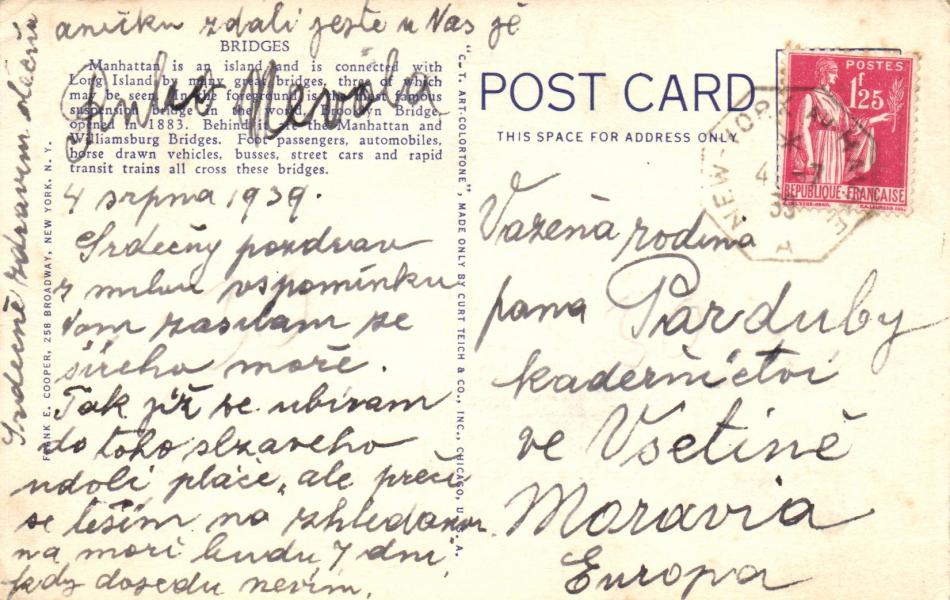 aničku zdali ješte u Vas je
BRIDGES
Manhattan is an island and is connected with
Long Island by many great bridges, three of which
may be seen. In the foreground is the most famous
suspension bridge in the world, Brooklyn Bridge,
opened in 1883. Behind it are the Manhattan and
Williamsburg Bridges. Foot passengers, automobiles,
horse drawn vehicles, busses, street cars and rapid
transit trains all cross these bridges.
4 srpna 1939.
Srdečny pozdrav
z milou vspomínku
Vam zasilam ze
šíreho moře.
Tak již se ubívam
do toho slzaveho
udoli pláče, ale preci
se těším na zhledanou
na moři budu 7 dni
kdy dosedu nevím.
Srdečně zdravem
FRANK E. COOPER, 258 BROADWAY, NEW YORK, N. Y.
"C. T. ART-COLORTONE", MADE ONLY BY CURT TEICH & CO., INC., CHICAGO, U. S. A.
POST CARD
THIS SPACE FOR ADDRESS ONLY
POSTES
1f25
REPUBLIQUE FRANÇAISE
NEW-YORK
A
Važená rodina
pana Parduby
kaderňictvi
ve Vsetině
Moravia
Europa